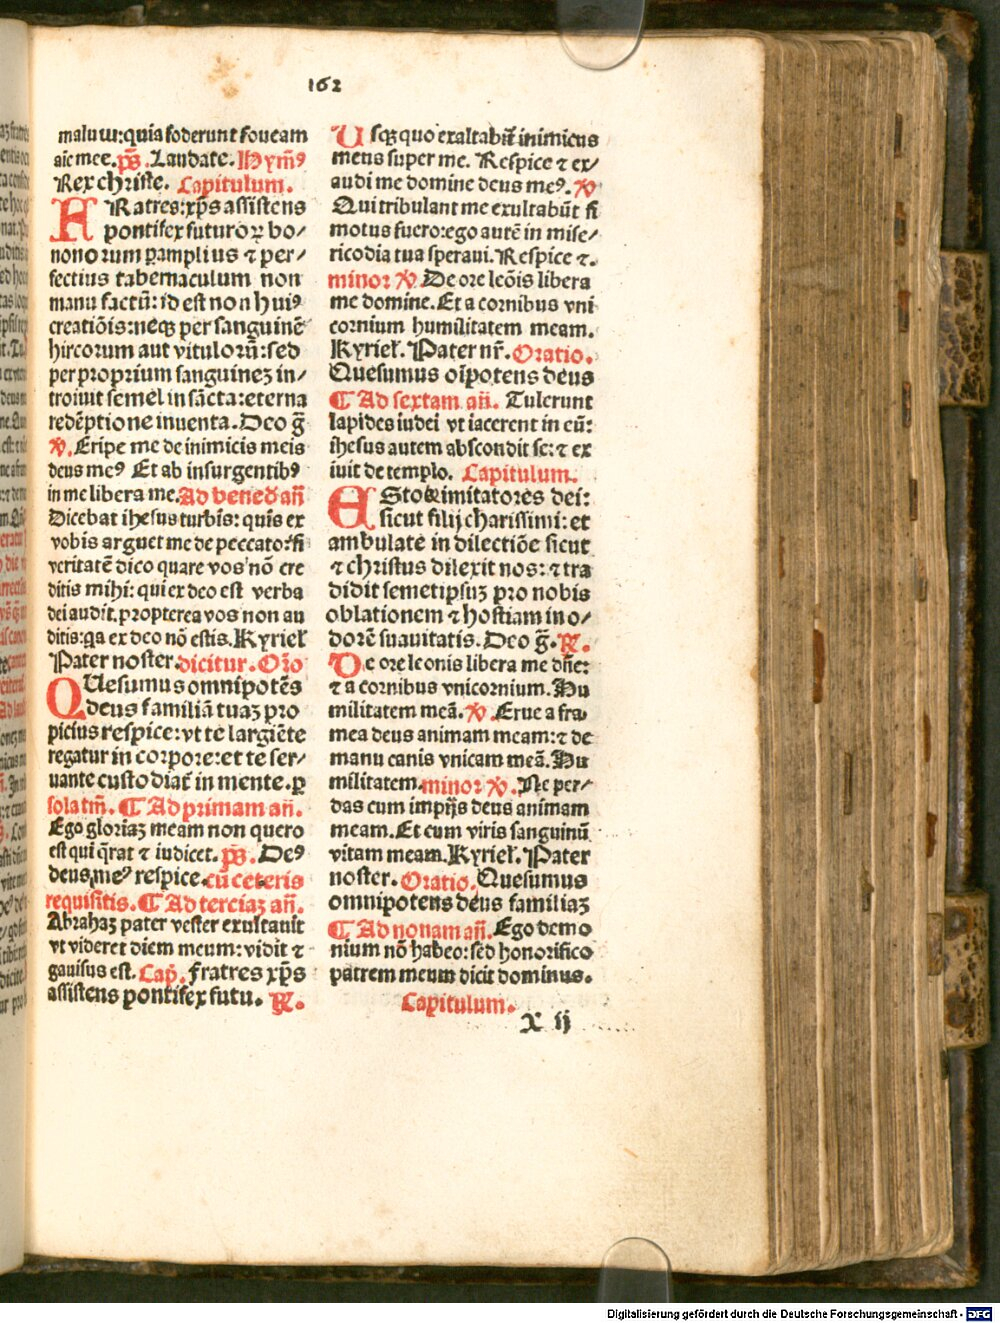 162
maluʒ:quia foderunt foueam
aīe mee.ps̄.Laudate.Hymꝰ
Rex christe. Capitulum.
FRatres:xp̄s assistens
pontifex futuroꝝ bo/
nonorum ꝑamplius ⁊ per/
fectius tabernaculum non
manu factū: id est non huiꝰ
creatiōis:neqʒ per sanguinē
hircorum aut vitulorū:sed
per proprium sanguineʒ in/
troiuit semel in sācta:eterna
redēptione inuenta.Deo g̅
℣.Eripe me de inimicis meis
deus meꝰ Et ab insurgentibꝰ
in me libera me.Ad bened̄ an̄
Dicebat ihesus turbis: quis ex
vobis arguet me de peccato:si
veritatē dico quare vos nō cre
ditis mihi: qui ex deo est verba
dei audit.propterea vos non au
ditis:qa ex deo nō estis.Kyriel̄
Pater noster.dicitur.Or̄o
QUesumus omnipotēs
deus familiā tuaʒ pro
picius respice:vt te largiēte
regatur in corpore:et te ser/
uante custodiat̄ in mente.ꝑ
sola tm̄. ¶ Ad primam an̄.
Ego gloriaʒ meam non quero
est qui q̄rat ⁊ iudicet. ps̄. Deꝰ
deus meꝰ respice.cū ceteris
requisitis. ¶ Ad terciaʒ an̄.
Abrahaʒ pater vester exultauit
vt videret diem meum: vidit ⁊
gauisus est. Cap̄. fratres xp̄s
assistens pontifex futu. ℟.
Usqʒ quo exaltabit̄ inimicus
meus super me. Respice ⁊ ex/
audi me domine deus meꝰ. ℣
Qui tribulant me exultabūt si
motus fuero:ego autē in mise/
ricodia tua speraui.Respice ⁊.
minor ℣. De ore leōis libera
me domine.Et a cornibus vni
cornium humilitatem meam.
Kyriel̄. Pater nr̄. Oratio.
Quesumus oīpotens deus
¶ Ad sextam an̄. Tulerunt
lapides iudei vt iacerent in eū:
ihesus autem abscondit se: ⁊ ex
iuit de templo. Capitulum.
EStote imitatores dei:
sicut filij charissimi: et
ambulate in dilectiōe sicut
⁊ christus dilexit nos: ⁊ tra
didit semetipsuʒ pro nobis
oblationem ⁊ hostiam in o/
dorē suauitatis. Deo g̅. ℟.
De ore leonis libera me dn̄e:
⁊ a cornibus vnicornium. Hu
militatem meā. ℣. Erue a fra
mea deus animam meam: ⁊ de
manu canis vnicam meā. Hu
militatem.minor ℣. Ne per/
das cum impijs deus animam
meam.Et cum viris sanguinū
vitam meam.Kyriel̄. Pater
noster. Oratio. Quesumus
omnipotens deus familiaʒ
¶ Ad nonam an̄. Ego demo
nium nō habeo:sed honorifico
patrem meum dicit dominus.
Capitulum.
X ij
Digitalisierung gefördert durch die Deutsche Forschungsgemeinschaft - DFG